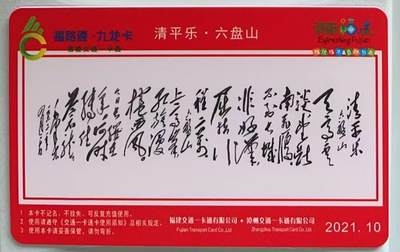 福路通·九龙卡
福建交通一卡通
清平乐·六盘山
Experiencing Fujian
清平乐
六盘山
天高云
淡望断
南飞雁
不到长城
非好汉
屈指行
程二万
六盘山
上高峰
红旗漫
卷西风
今日长缨
在手何时
缚住
苍龙
毛泽东
1 本卡不记名，不挂失，可反复充值使用。
2 使用请遵守《交通一卡通卡使用须知》及相关规定。
3 使用本卡请妥善保管，请勿弯折。
福建交通一卡通有限公司·漳州交通一卡通有限公司
Fujian Transportation Card Co.,Ltd Zhangzhou Transportation Card Co.,Ltd
2021.10